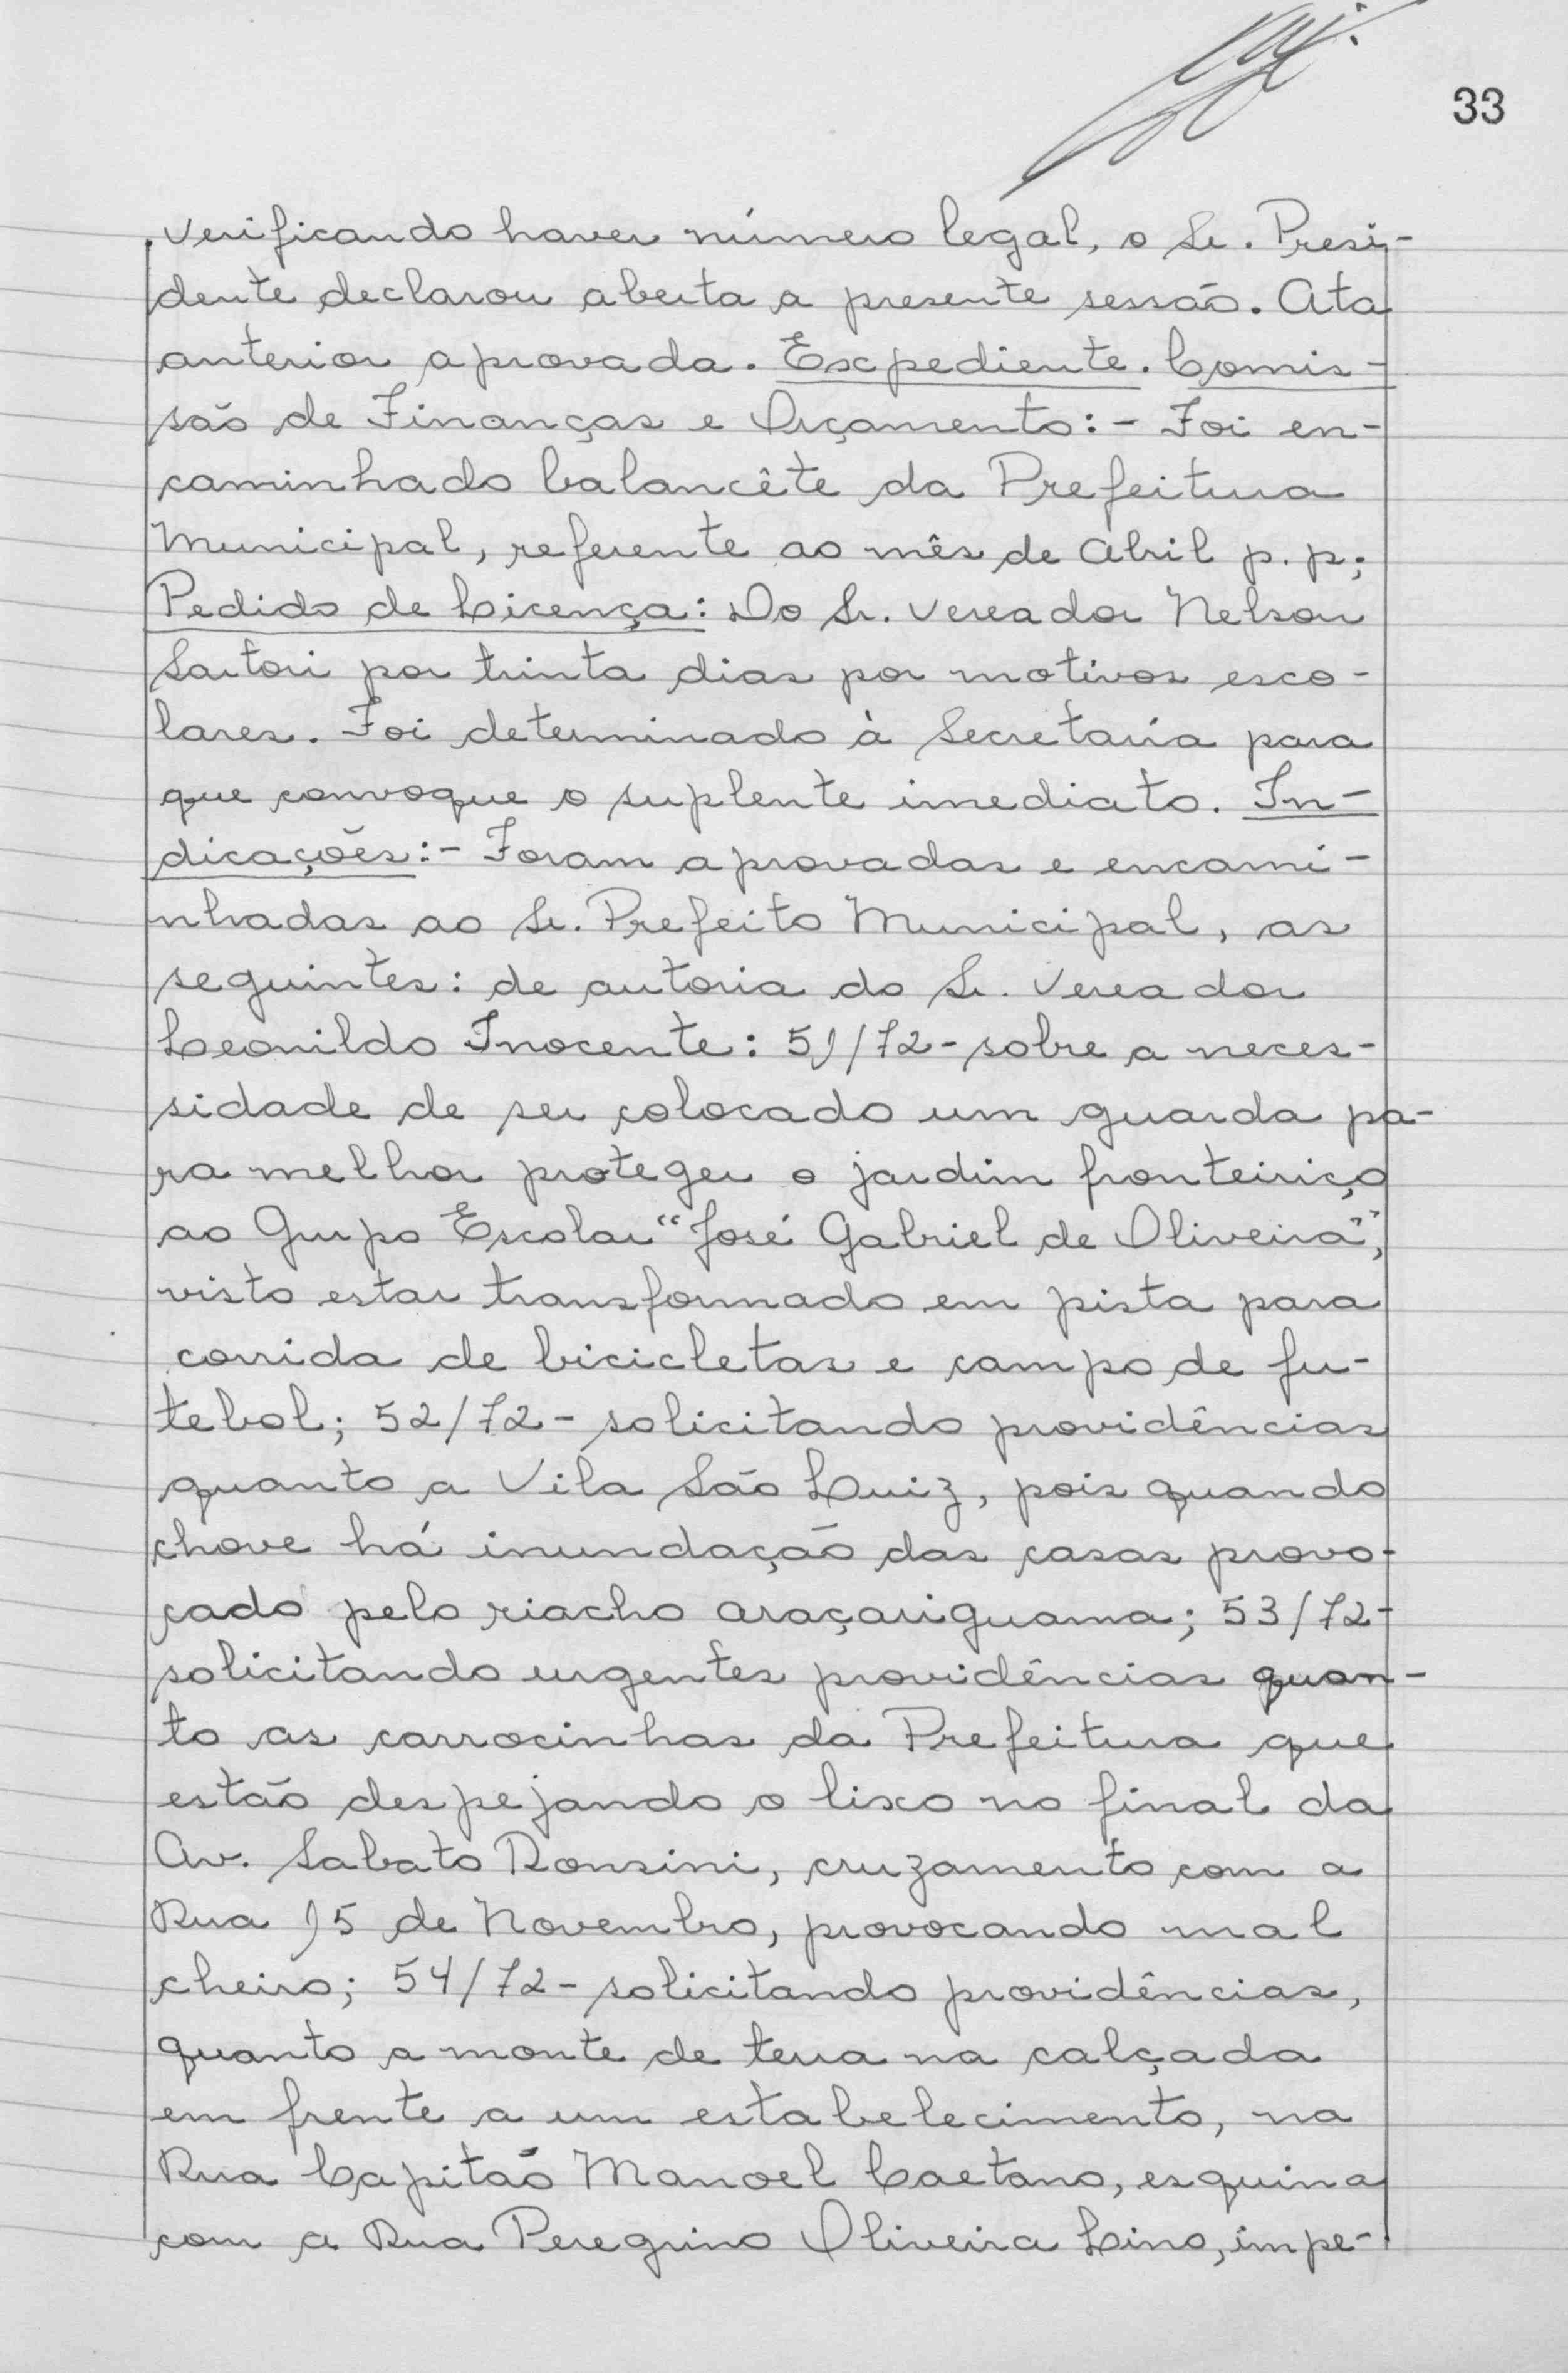 33
verificando haver número legal, o Sr. Presi-
dente declarou aberta a presente sessão. Ata
anterior aprovada. Expediente. Comis-
são de Finanças e Orçamento:- Foi en-
caminhado balancête da Prefeitura
Municipal, referente ao mês de Abril p. p;
Pedido de Licença: Do Sr. Vereador Nelson
Sartori por trinta dias por motivos esco-
lares. Foi determinado à Secretaria para
que convoque o suplente imediato. In-
dicações:- Foram aprovadas e encami-
nhadas ao Sr. Prefeito Municipal, as
seguintes: de autoria do Sr. Vereador
Leonildo Inocente: 51/72- sobre a neces-
sidade de ser colocado um guarda pa-
ra melhor proteger o jardim fronteiriço
ao Grupo Escolar "José Gabriel de Oliveira",
visto estar transformado em pista para
corrida de bicicletas e campo de fu-
tebol; 52/72- solicitando providências
quanto a Vila São Luiz, pois quando
chove há inundação das casas provo-
cado pelo riacho araçariguama; 53/72-
solicitando urgentes providências quan-
to as carrocinhas da Prefeitura que
estão despejando o lixo no final da
Av. Sabato Ronsini, cruzamento com a
Rua 15 de Novembro, provocando mal
cheiro; 54/72- solicitando providências,
quanto a monte de terra na calçada
em frente a um estabelecimento, na
Rua Capitão Manoel Caetano, esquina
com a Rua Peregrino Oliveira Lino, impe-